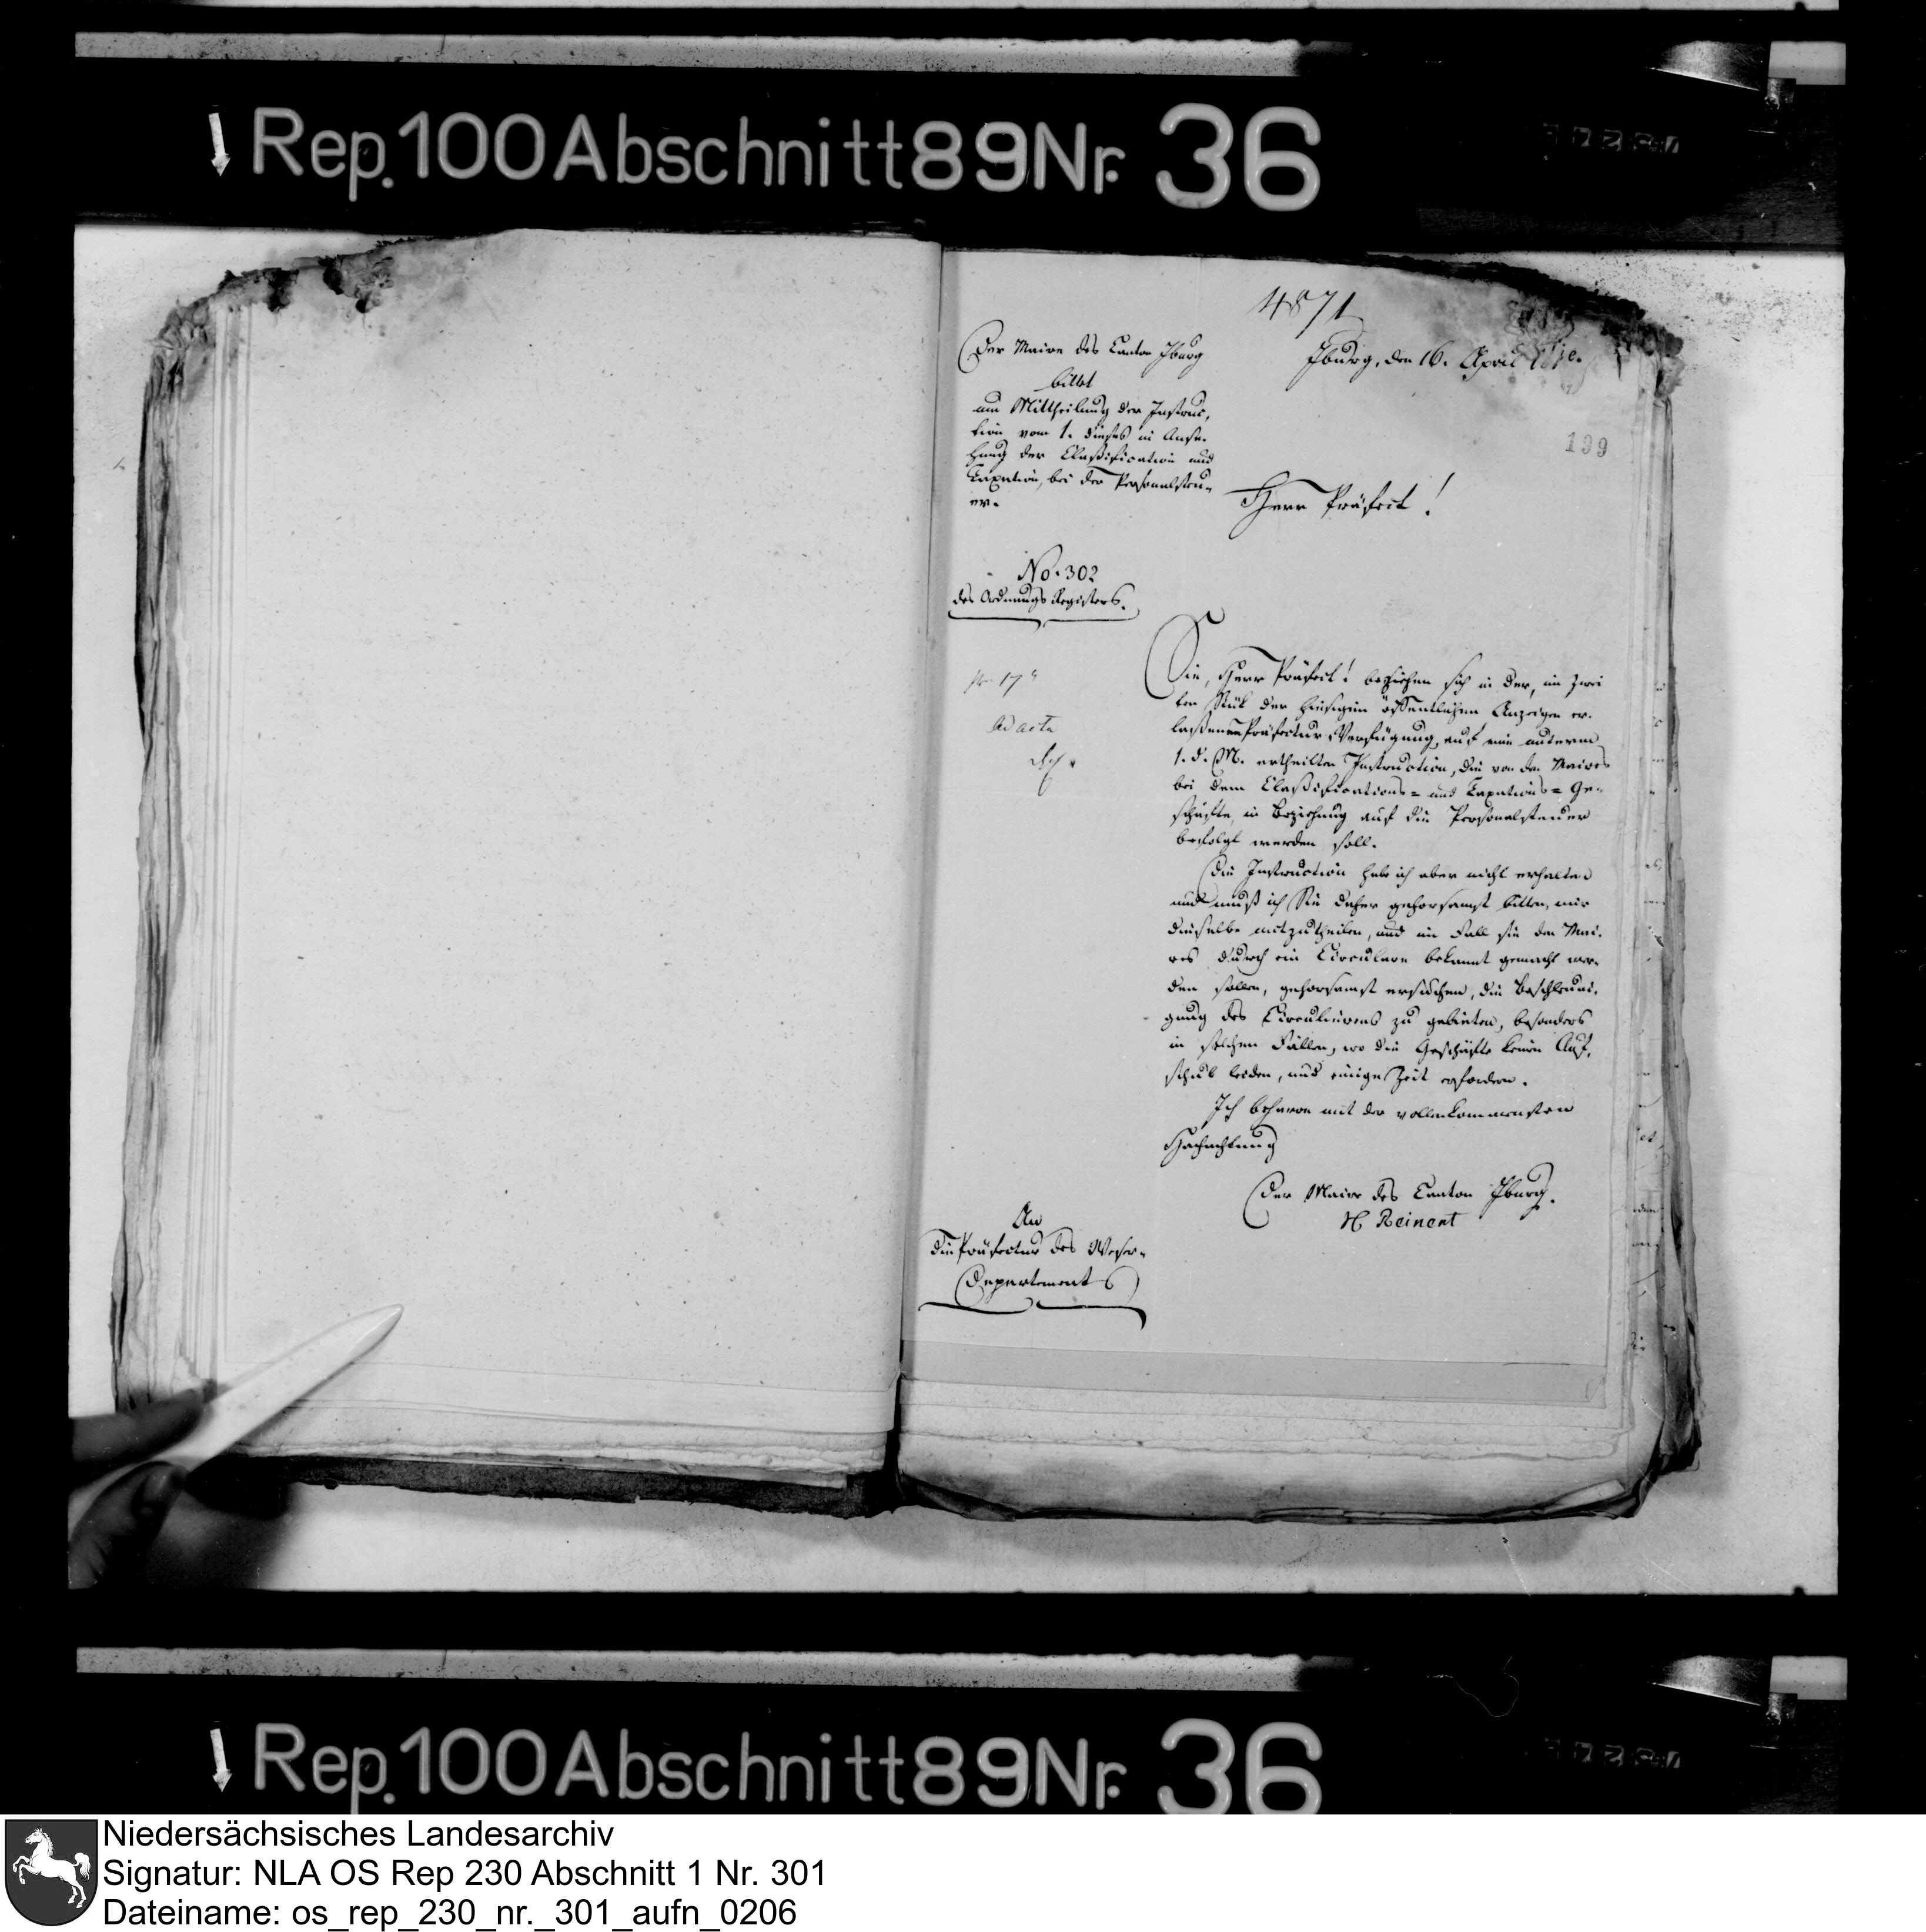 Rep. 100 Abschnitt 89 Nr. 36
4871
Iburg, den 16. April
199
Der Maire des Canton Iburg
bittet
um Mittheilung der Instruc,
tion vom 1. dieses in Anse,
hung der Classification und
Taxation, bei der Personalsteu-
er.
Herr Präfect!
No. 302
des Ordnungs Registers.
17
ad acta
Sie, Herr Präfect! beziehen sich in der, im zwei
ten Stük der hiesigen öffentlichen Anzeigen er,
laßenen Präfectur Verfügung, auf eine unterm
1. d. M. ertheilten Instruction, die von den Maires
bei dem Classifications- und Taxations-Ge-
schäfte, in Beziehung auf die Personalsteuer
befolgt werden soll.
Die Instruction habe ich aber nicht erhalten
und muß ich Sie daher gehorsamst bitten, mir
dieselbe mitzutheilen, und im Fall sie den Mai,
res durch ein Circulare bekannt gemacht wer,
den sollen, gehorsamst ersuchen, die Beschleuni,
gung des Circulirens zu gebieten, besonders
in solchen Fällen, wo die Geschäfte keinen Auf,
schub leiden, und einige Zeit erfordern.
Ich beharre mit der vollenkommensten
Hochachtung
Der Maire des Canton Iburg.
H Reinent
An
die Präfectur des Weser-
Departements
Rep. 100 Abschnitt 89 Nr. 36
Niedersächsisches Landesarchiv
Signatur: NLA OS Rep 230 Abschnitt 1 Nr. 301
Dateiname: os_rep_230_nr._301_aufn_0206